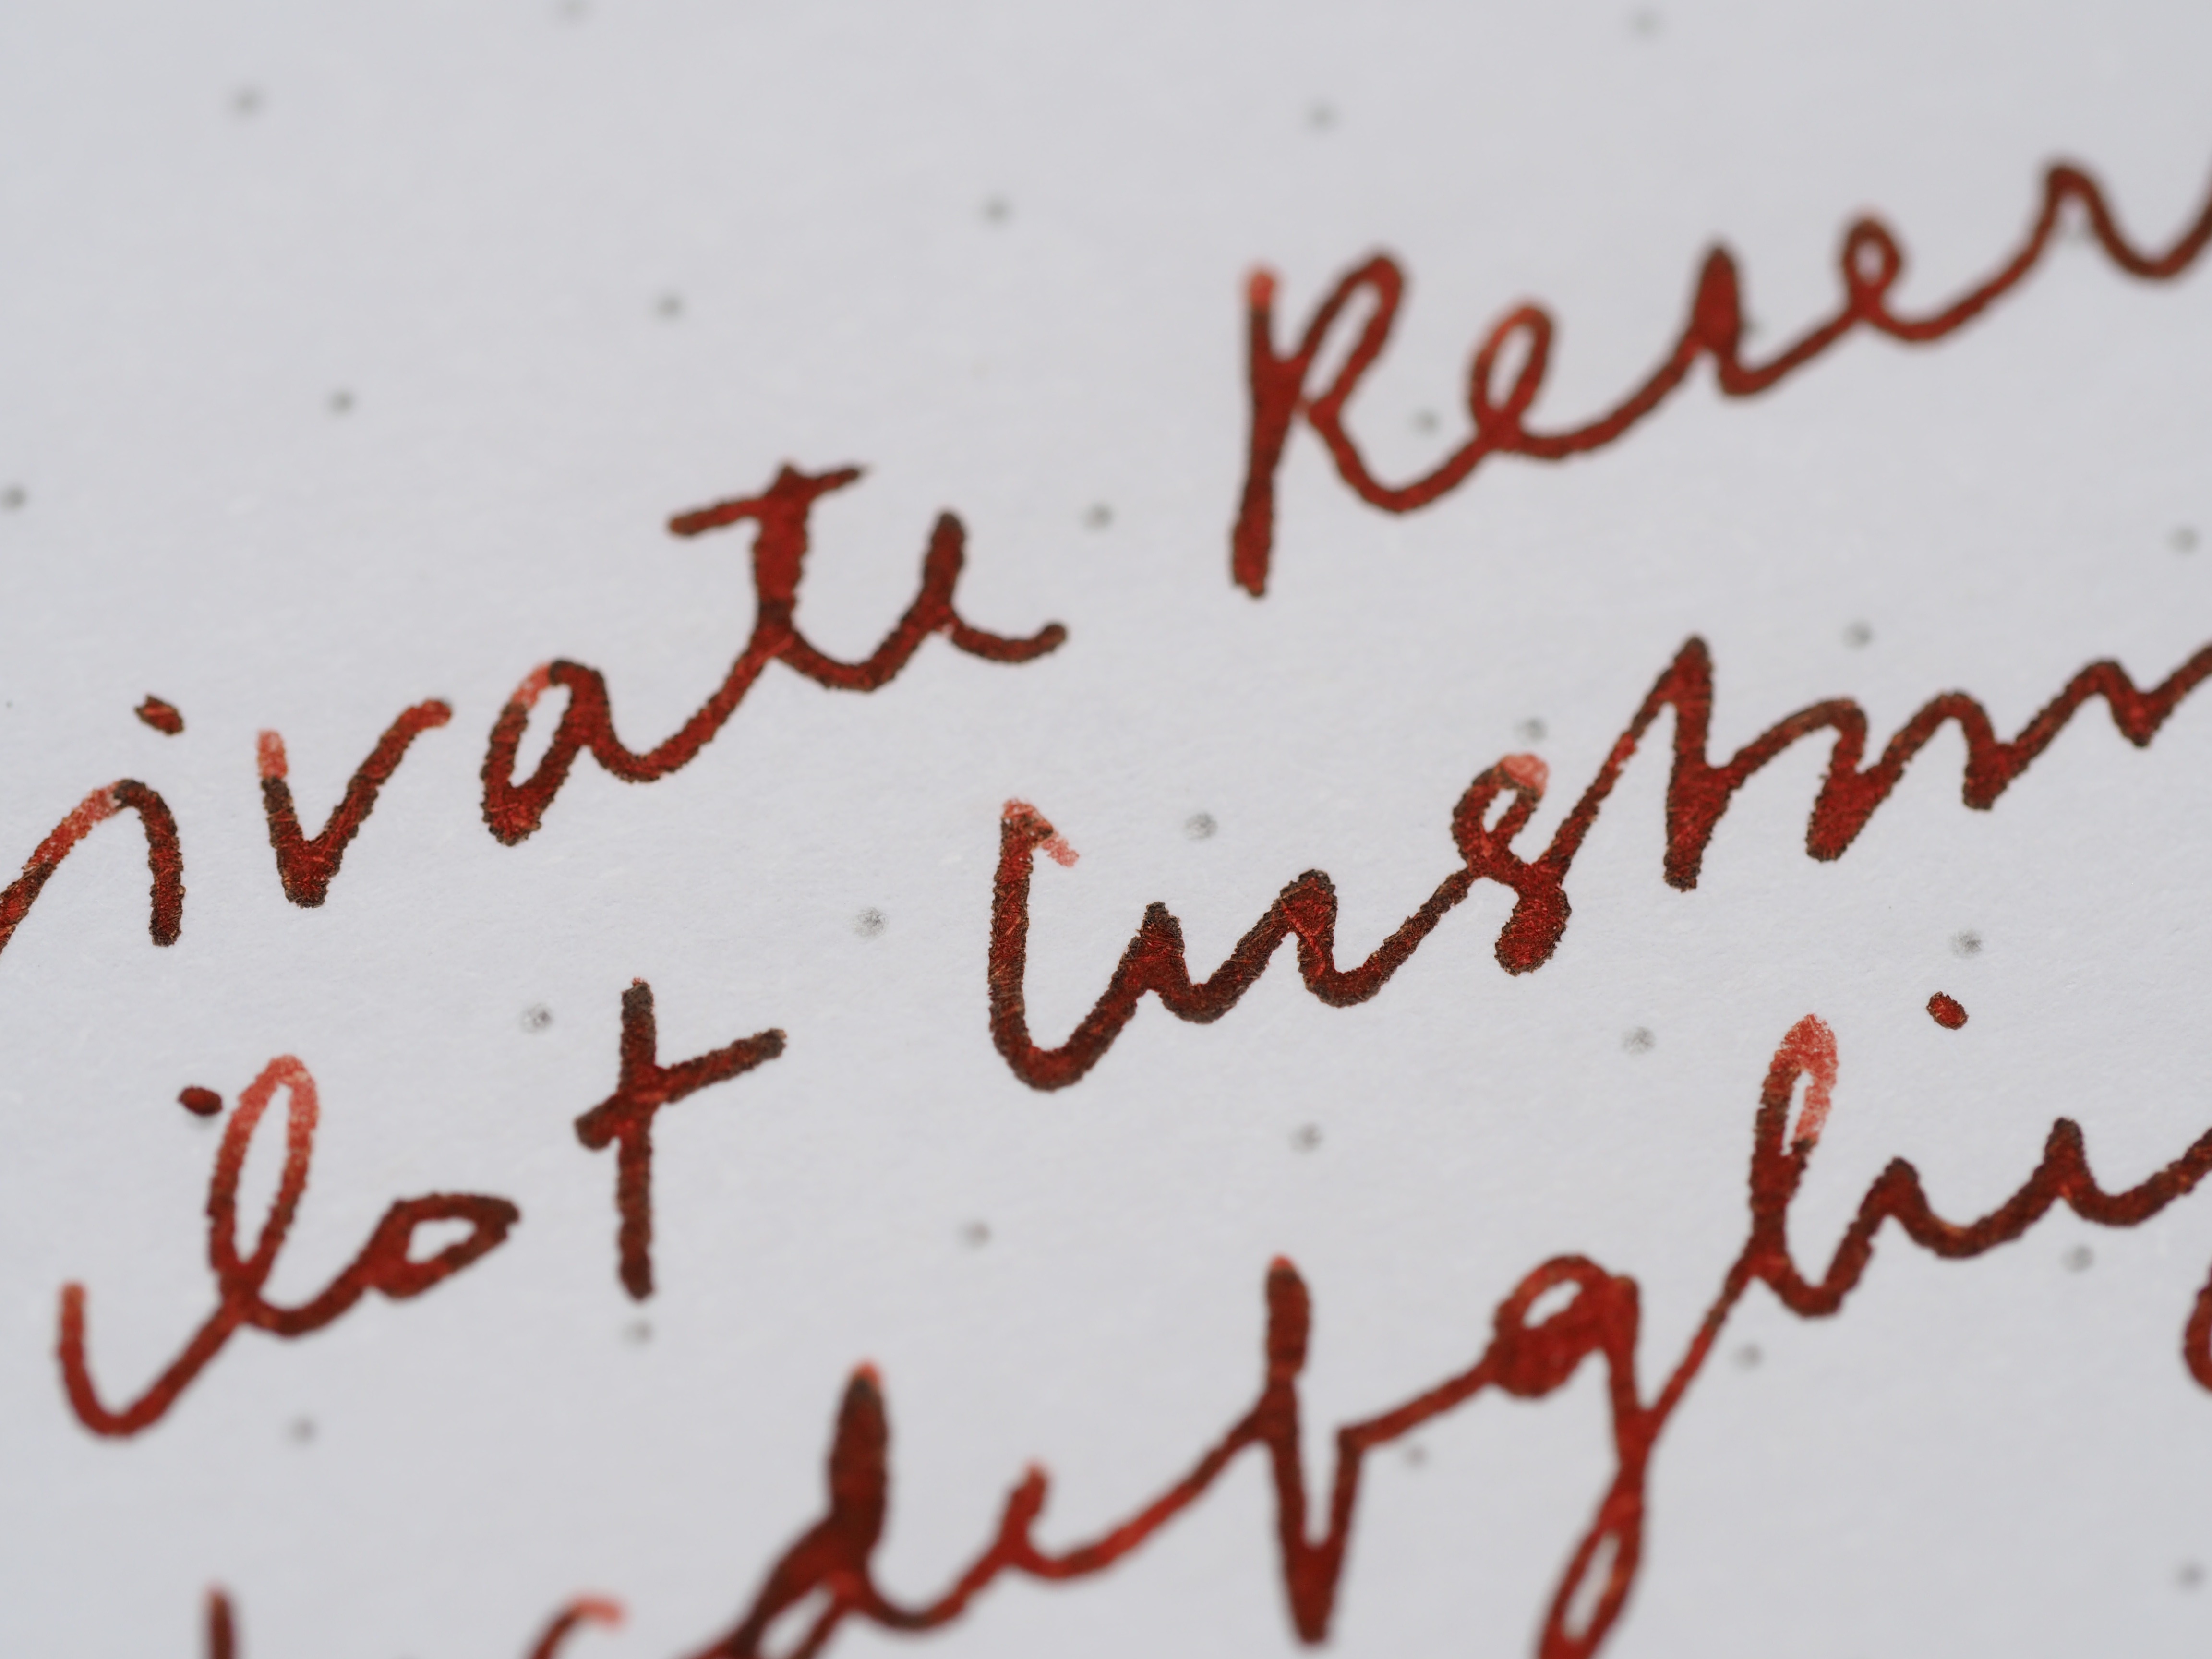 rivate Reser
ilot Cusm
defghi